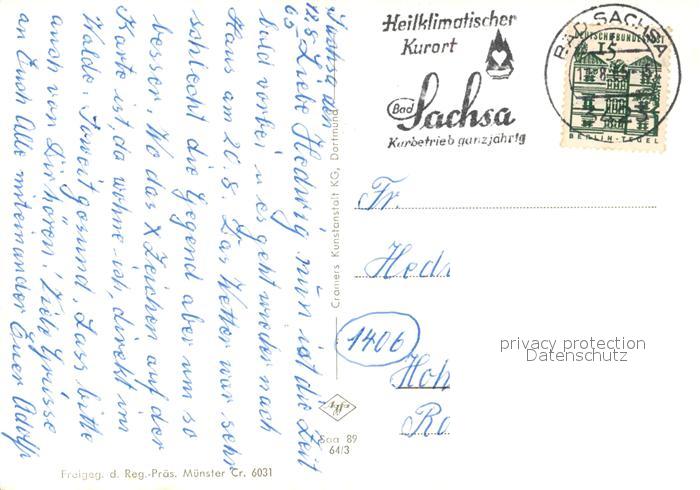 Sachsa den
12.8. Liebe Hedwig nun ist die Zeit
65
bald vorbei u. es geht wieder nach
Haus am 20.8. Das Wetter war sehr
schlecht die Gegend aber um so
besser. Wo das X Zeichen auf der
Karte ist, da wohne ich, direkt im
Walde. Soweit gesund. Lass bitte
auch von Dir hören! Viele Grüsse
an Euch Alle miteinander Euer Adolf
Freigeg. d. Reg.-Präs. Münster Cr. 6031
Cramers Kunstanstalt KG, Dortmund
Agfa
Saa 89
64/3
Heilklimatischer
Kurort
Bad Sachsa
Kurbetrieb ganzjährig
BAD SACHSA
DEUTSCHE BUNDESPOST
15
BERLIN-TEGEL
Fr.
Hed
1406
Hoh
Ro
privacy protection
Datenschutz